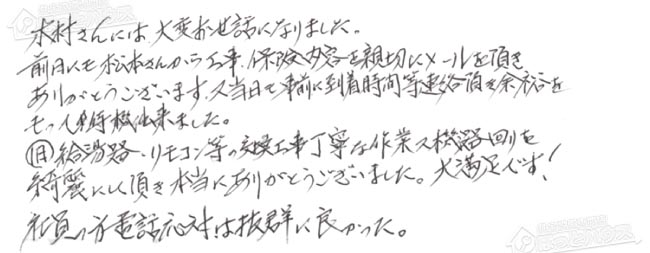 木村さんには、大変お世話になりました。
前日にも松本さんから工事、保険内容を親切にメールを頂き
ありがとうございます。又当日も事前に到着時間等連絡頂き余裕を
もって待機出来ました。
㊐給湯器・リモコン等の交換工事丁寧な作業又機器回りを
綺麗にして頂き本当にありがとうございました。大満足です!
社員の方電話応対は抜群に良かった。